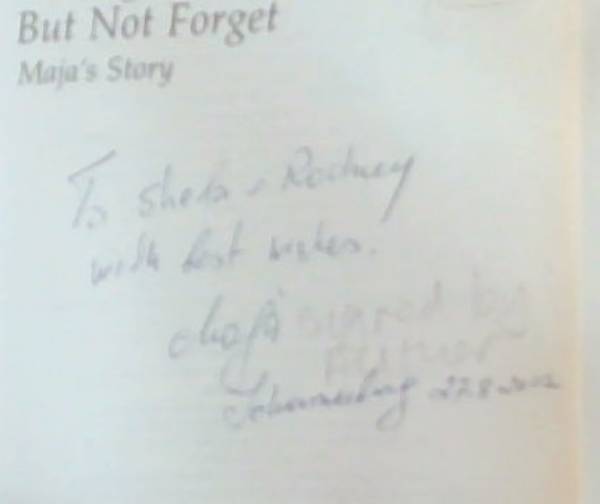 But Not Forget
Maja's Story
To Sheila & Rodney
with best wishes.
Maja signed by
Author
Johannesburg 27.8.2002